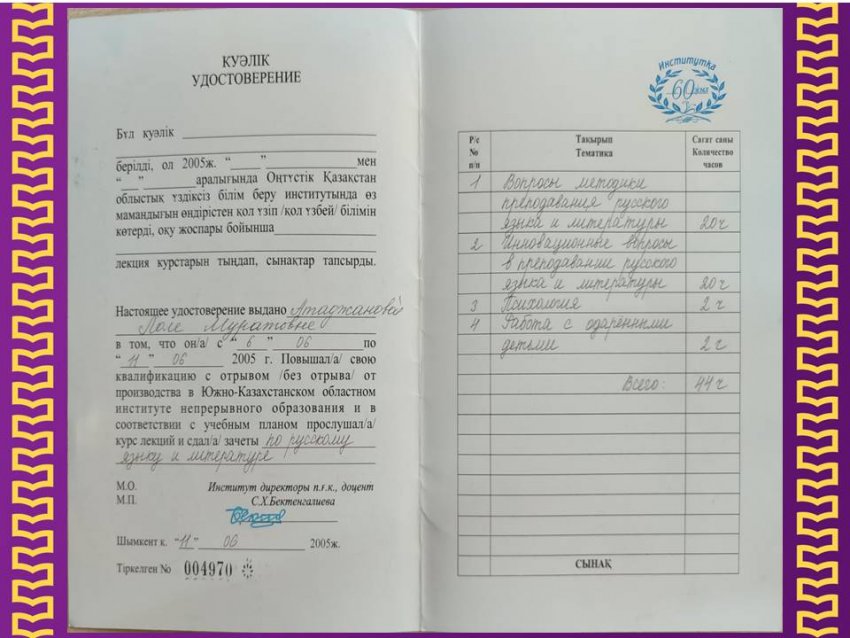 КУӘЛІК
УДОСТОВЕРЕНИЕ
Бұл куәлік
берілді, ол 2005ж. “ ” мен
“ ” аралығында Оңтүстік Қазақстан
облыстық үздіксіз білім беру институтында өз
мамандығын өндірістен қол үзіп /қол үзбей/ білімін
көтерді, оқу жоспары бойынша
лекция курстарын тыңдап, сынақтар тапсырды.
Настоящее удостоверение выдано Атаджановой
Поле Муратовне
в том, что он/а/ с “ 6 ” 06 по
“ 11 ” 06 2005 г. Повышал/а/ свою
квалификацию с отрывом /без отрыва/ от
производства в Южно-Казахстанском областном
институте непрерывного образования и в
соответствии с учебным планом прослушал/а/
курс лекций и сдал/а/ зачеты по русскому
языку и литературе
М.О. Институт директоры п.ғ.к., доцент
М.П. С.Х.Бектенгалиева
Шымкент к. “11” 06 2005ж.
Тіркелген No 004970
Институтқа
60 жыл
Р/с No п/п Тақырып Тематика Сағат саны Количество часов
1 Вопросы методики
преподавания русского
языка и литературы 20 ч
2 Инновационные вопросы
в преподавании русского
языка и литературы 20 ч
3 Психология 2 ч
4 Работа с одаренными
детьми 2 ч
Всего: 44 ч
СЫНАҚ